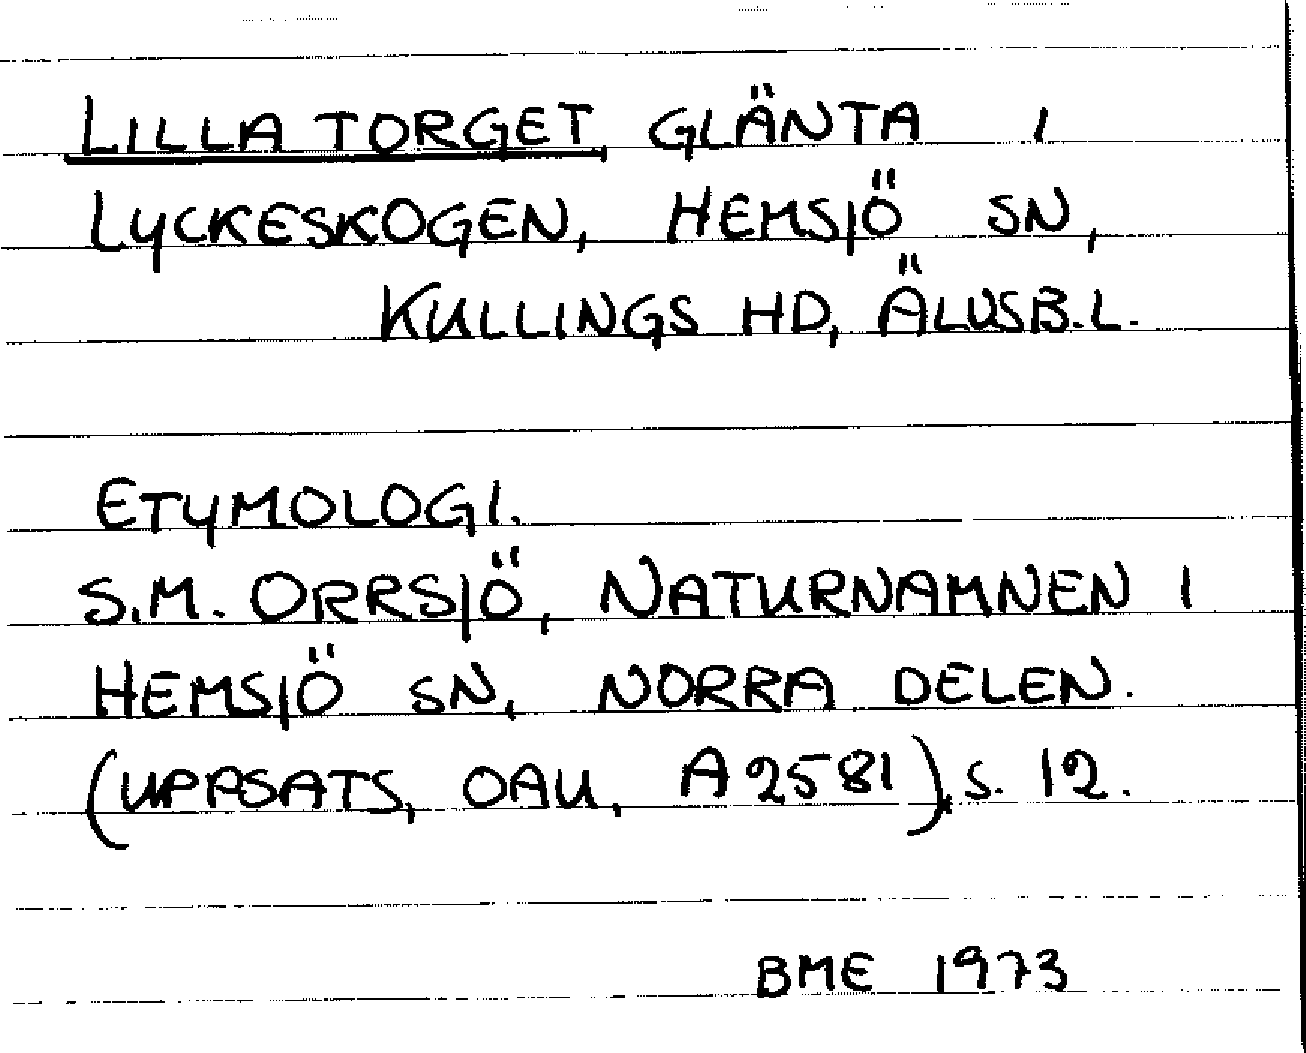 LILLA TORGET, GLÄNTA I
LYCKESKOGEN, HEMSJÖ SN,
KULLINGS HD, ÄLVSB.L.
ETYMOLOGI.
S.M. ORRSJÖ, NATURNAMNEN I
HEMSJÖ SN, NORRA DELEN.
(UPPSATS, OAU, A2581), S. 12.
BME 1973